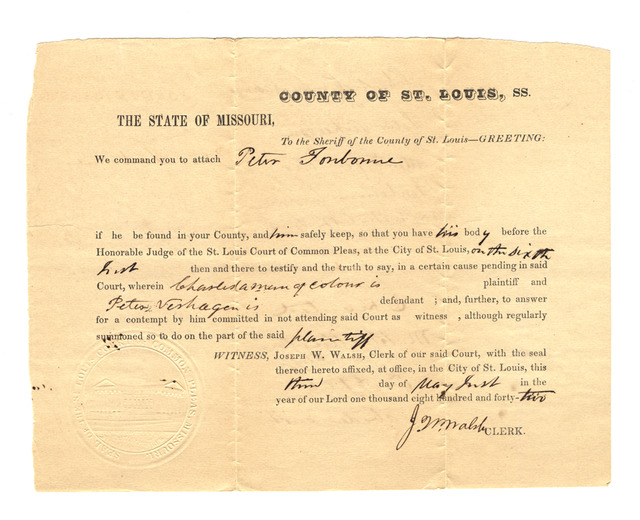 COUNTY OF ST. LOUIS, SS.
THE STATE OF MISSOURI,
To the Sheriff of the County of St. Louis—GREETING:
We command you to attach Peter Fonbonne
if he be found in your County, and him safely keep, so that you have his body before the
Honorable Judge of the St. Louis Court of Common Pleas, at the City of St. Louis, on the sixth
Inst then and there to testify and the truth to say, in a certain cause pending in said
Court, wherein Charles a man of colour is plaintiff and
Peter Verhagen is defendant ; and, further, to answer
for a contempt by him committed in not attending said Court as witness , although regularly
summoned so to do on the part of the said plaintiff
WITNESS, JOSEPH W. WALSH, Clerk of our said Court, with the seal
thereof hereto affixed, at office, in the City of St. Louis, this
third day of May Inst in the
year of our Lord one thousand eight hundred and forty-two
J W Walsh CLERK.